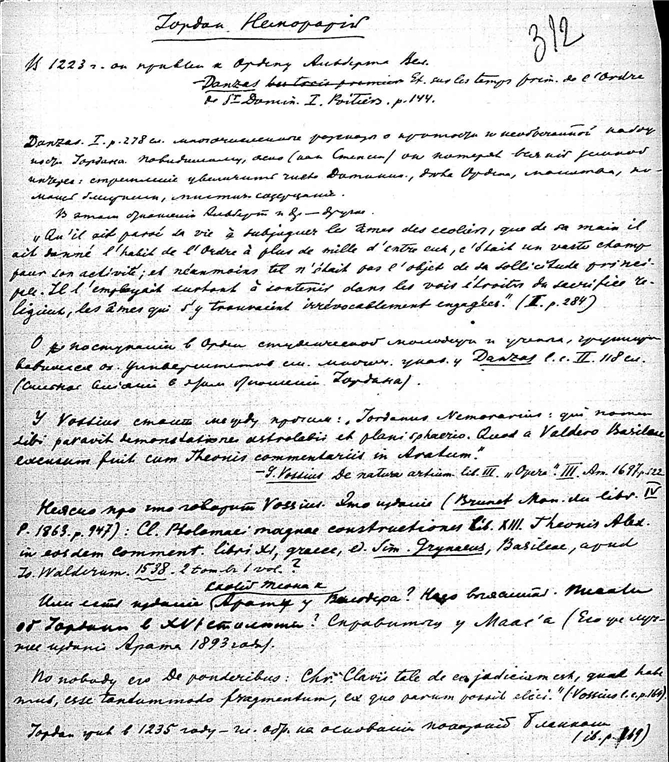 Іордан Неморарій
312
В 1223 г. он привлек к Ордену Альберта Вел.
Danzas Et. sur les temps prim. de l'Ordre
de St Domin. I. Poitiers. p. 144.
Danzas. I. p. 278 сл. многочисленные о кротости и необычайной
Іордана. Повидимому, он потерял всякій земной
интерес: стремленіе увеличить число Доминик., дела Ордена, молитва,
мистич. созерцаніе.
В этом отношеніи Альберт и
„Qu'il ait passé sa vie à subjuguer les âmes des écoliers, que de sa main il
ait donné l'habit de l'Ordre à plus de mille d'entre eux, c'était un vaste champ
pour son activité; et néanmoins tel n'était pas l'objet de sa sollicitude princi-
pale. Il l'employait surtout à soutenir dans les voies étroites du sacrifice re-
ligieux, les âmes qui s'y trouvaient irrévocablement engagées." (I. p. 284)
О поступленіи в Орден студенческой молодежи и
ок. университетов см. многоч. указ. у Danzas l.c. II. 118 сл.
Іордана).
У Vossius стоит между прочим: „Jordanus Nemorarius: qui nomen
sibi paravit demonstatione astrolabii et planisphaerio. Quod a Valdero Basileae
excusum fuit cum Theonis commentariis in Aratum."
– J. Vossius De natura artium lib. III. „Opera". III. Am. 1697. p. 122
Неясно про что говорит Vossius. Это изданіе (Brunet Man. du libr. IV
P. 1863. p. 947): Cl. Ptolomaei magnae constructiones lib. XIII. Theonis Alex.
in eosdem comment. libri XI, graece, ed. Sim. Grynaeus, Basileae, apud
Io. Walderum. 1538. 2 tom. 1 vol.?
схоліи Теона к
Или есть изданіе Арату у Вальдера? Надо выяснить. Писали
об Іордане в XVI столетіи? Справиться у Maas'а (Его же луч-
шее изданіе Арата 1893 года).
По поводу его De ponderibus: Chr. Clavii tale de eo judicium est, quod habe-
mus, esse tantummodo fragmentum, ex quo parum possit elici." (Vossius l.c. p. 164).
Іордан умер в 1235 году – на основаніи показаній Бланкан
(ib. p. 169)